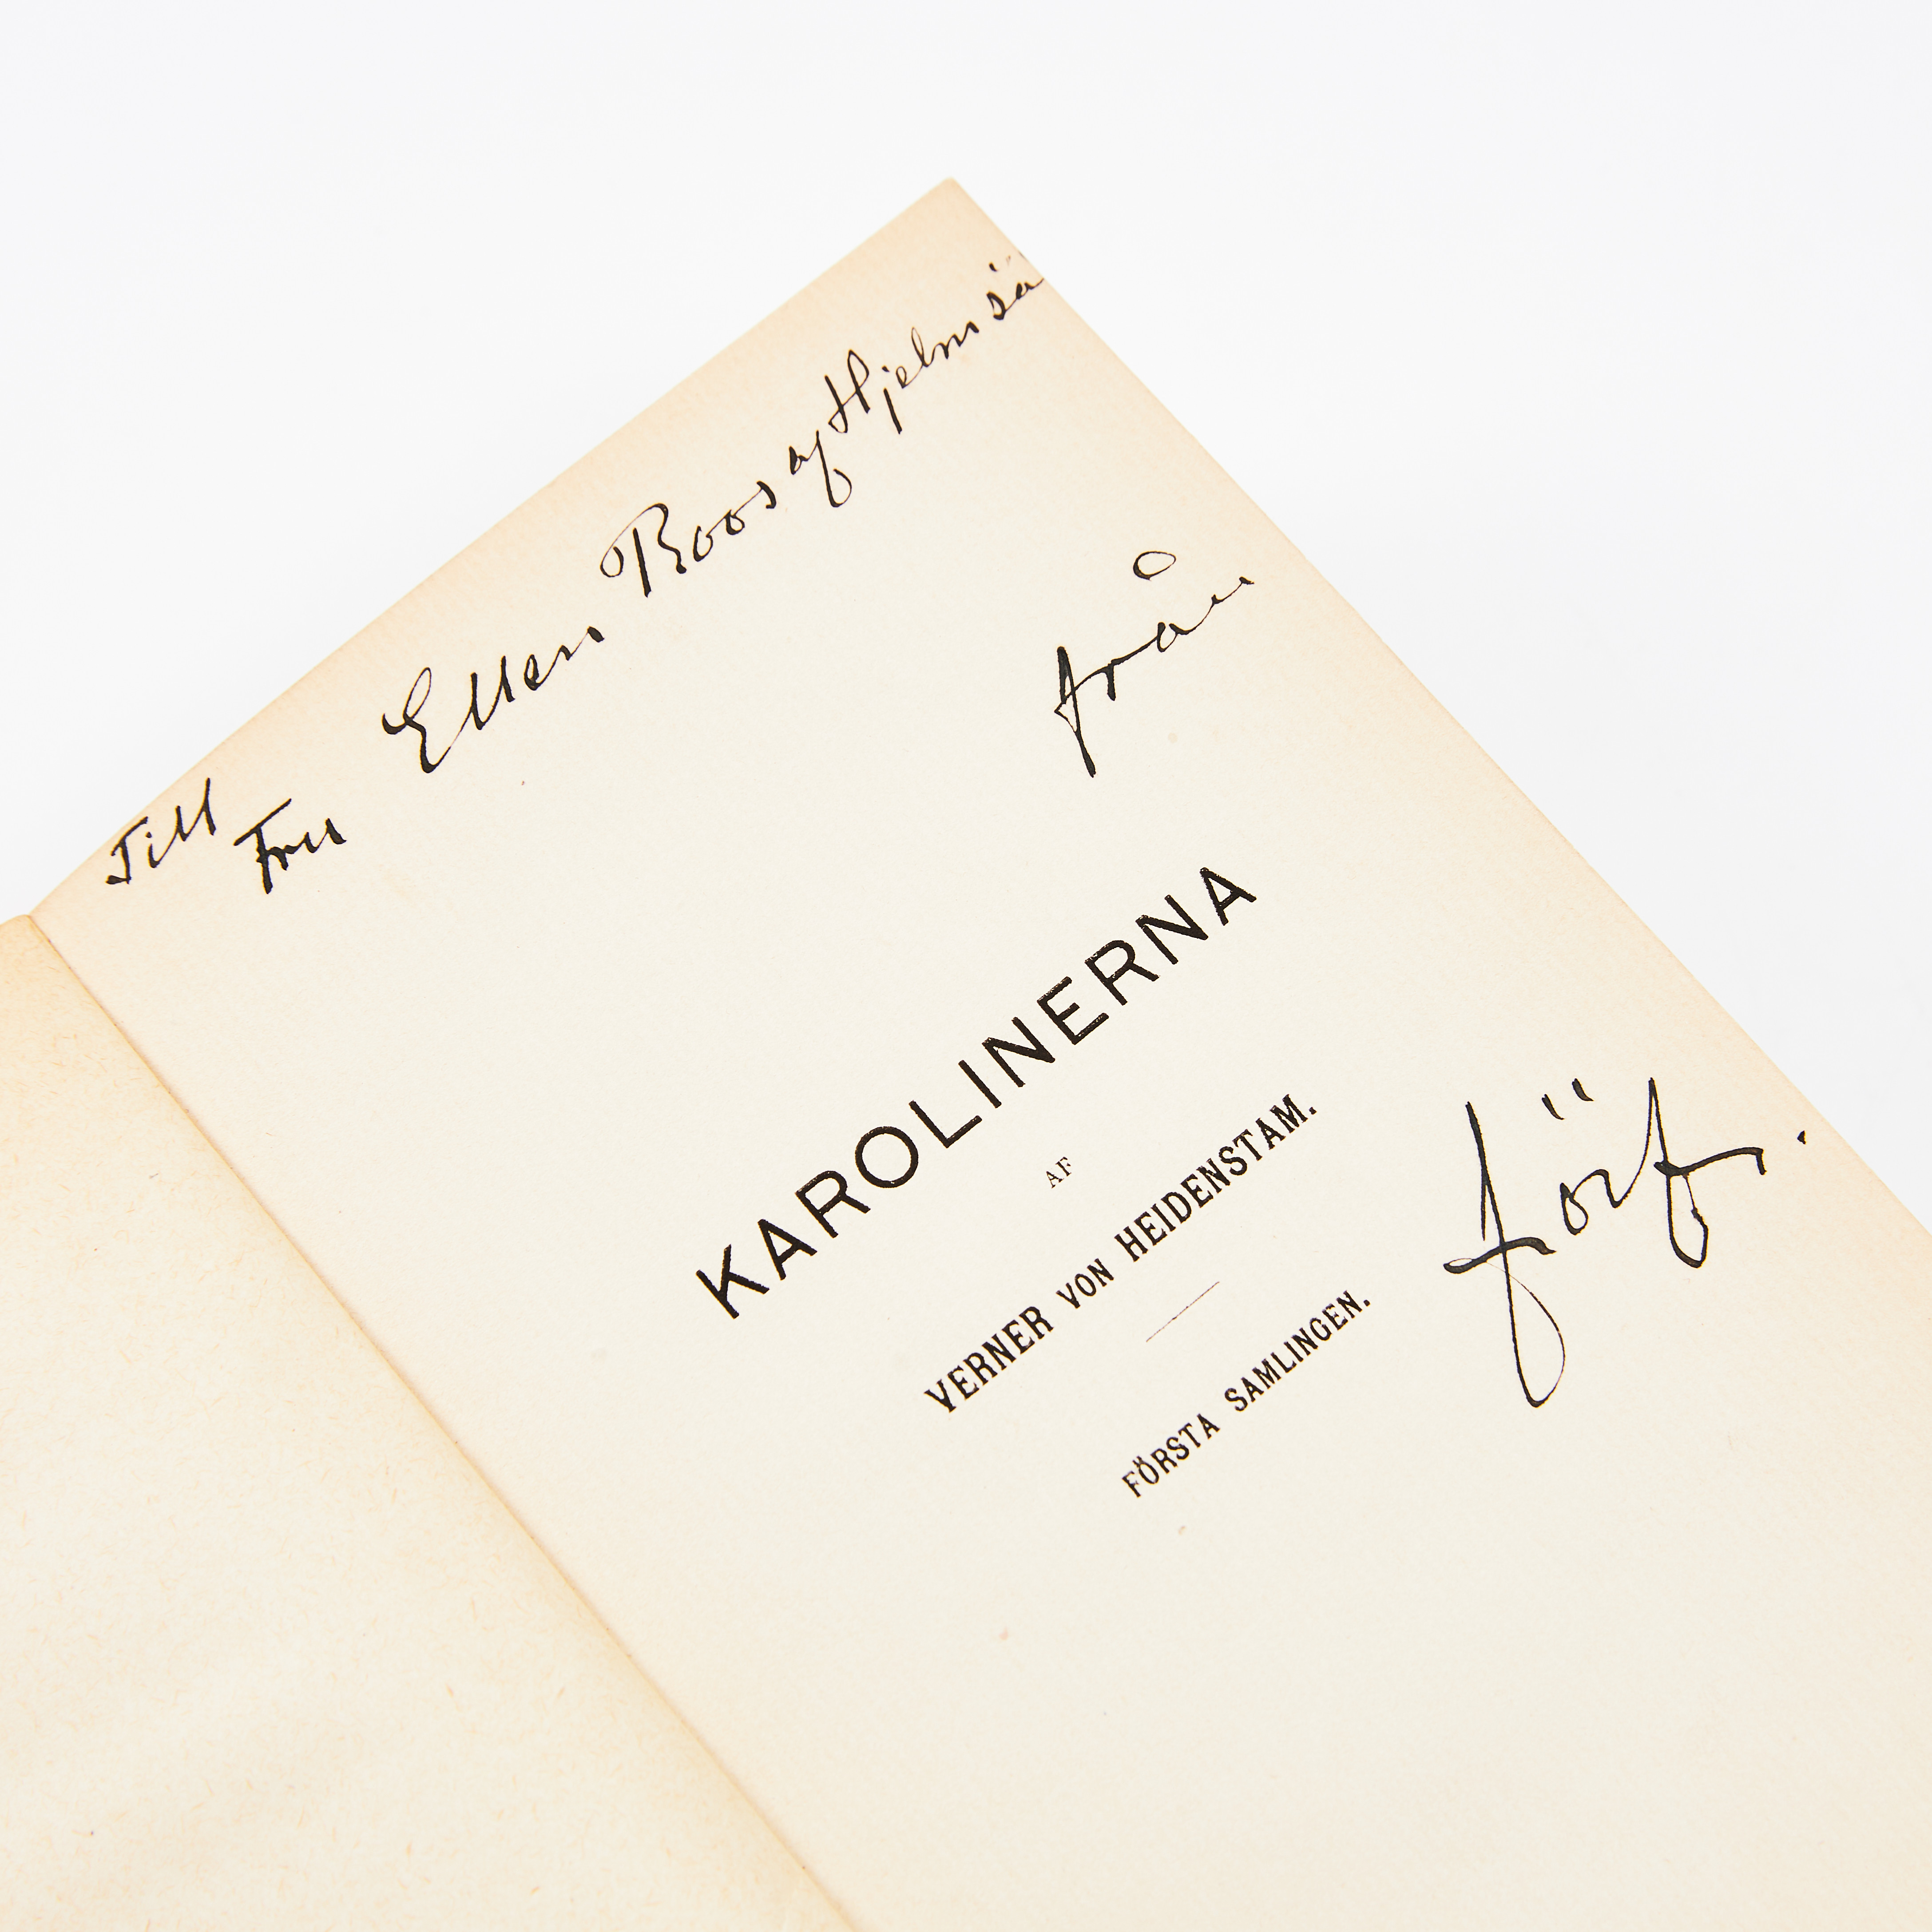 Till
Fru Ellen Roos af Hjelmsä
från
KAROLINERNA
AF
VERNER VON HEIDENSTAM.
FÖRSTA SAMLINGEN.
förf.